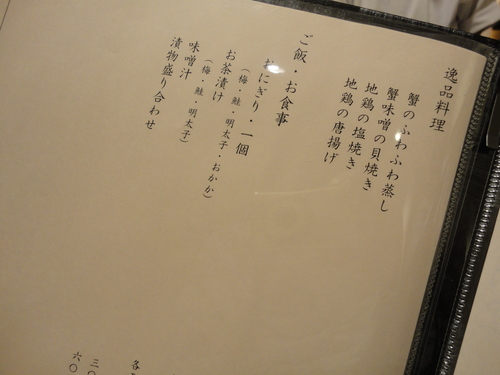 逸品料理
蟹のふわふわ蒸し
蟹味噌の貝焼き
地鶏の塩焼き
地鶏の唐揚げ
ご飯・お食事
おにぎり・一個
（梅・鮭・明太子・おかか）
お茶漬け
（梅・鮭・明太子）
味噌汁
漬物盛り合わせ
各
三〇
六〇